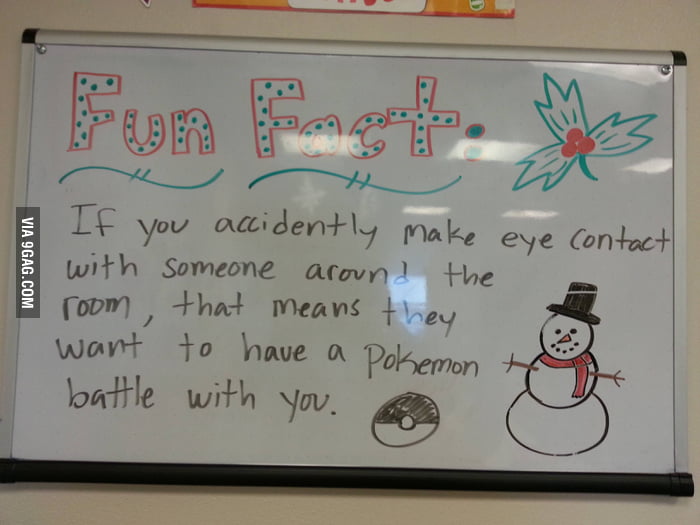 Fun Fact:
If you accidently make eye contact
with someone around the
room, that means they
want to have a Pokemon
battle with you.
VIA 9GAG.COM